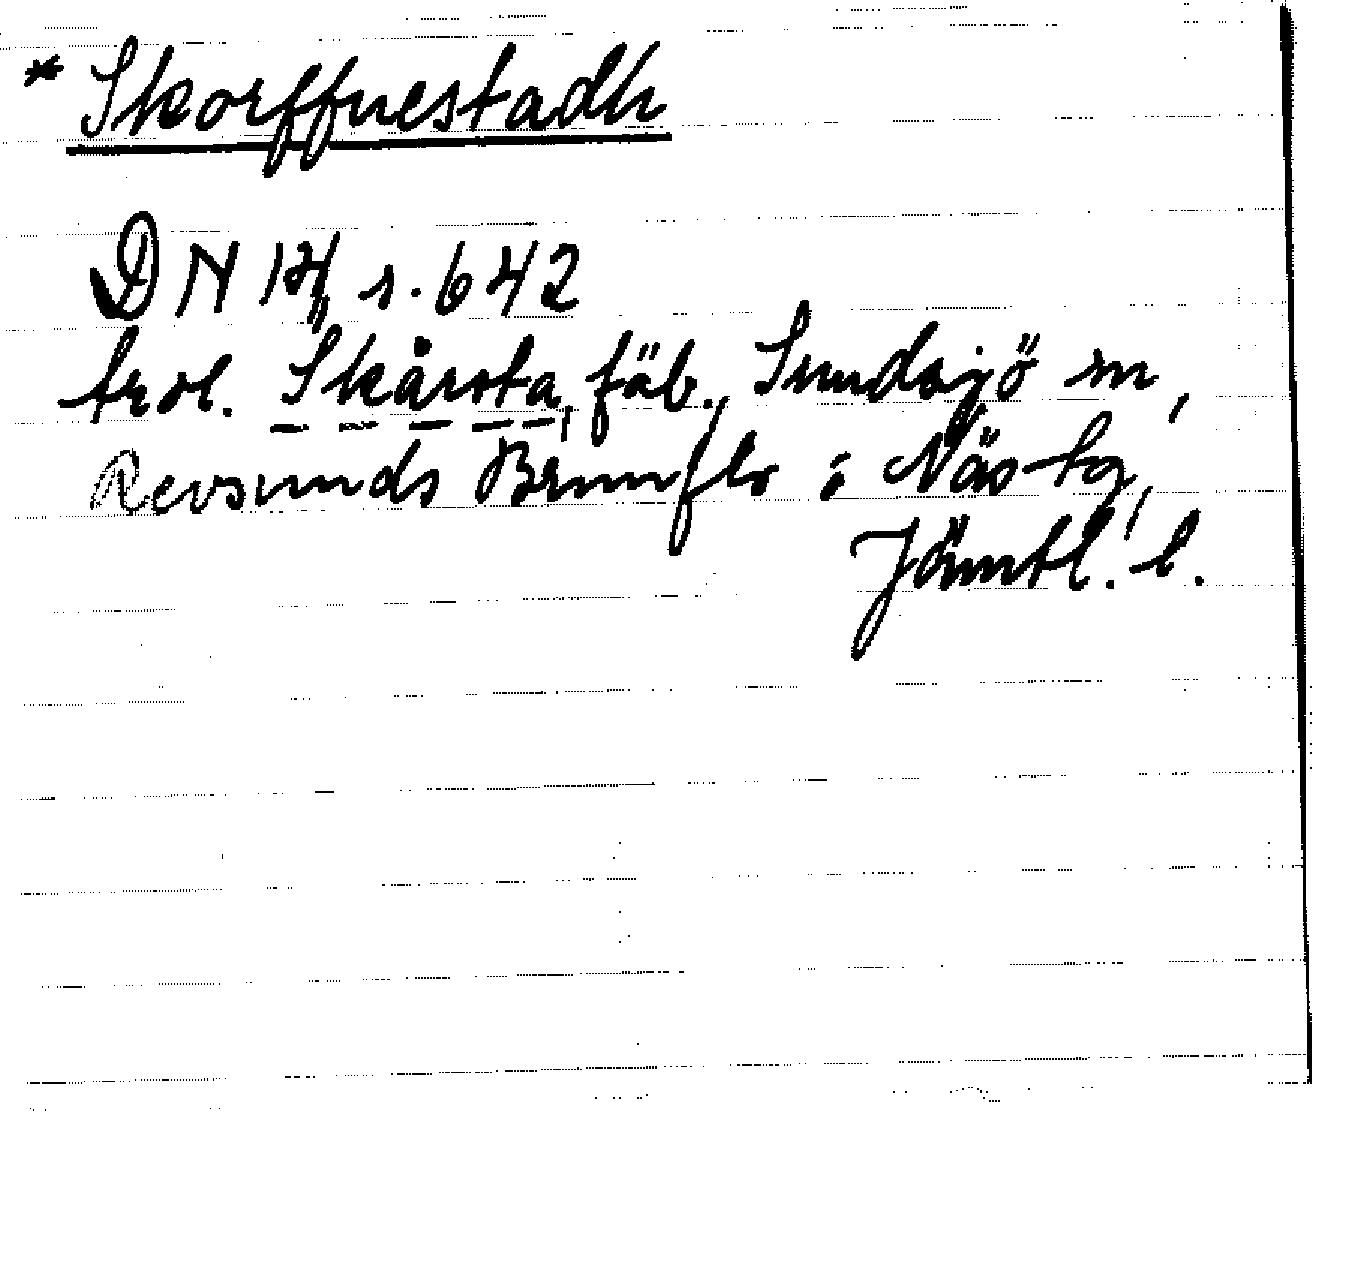 * Skorffuestadh
DN 14, s. 642
trol. Skårsta, fäb., Sundsjö sn,
Revsunds Brunflo o Näs tg,
Jämtl. l.